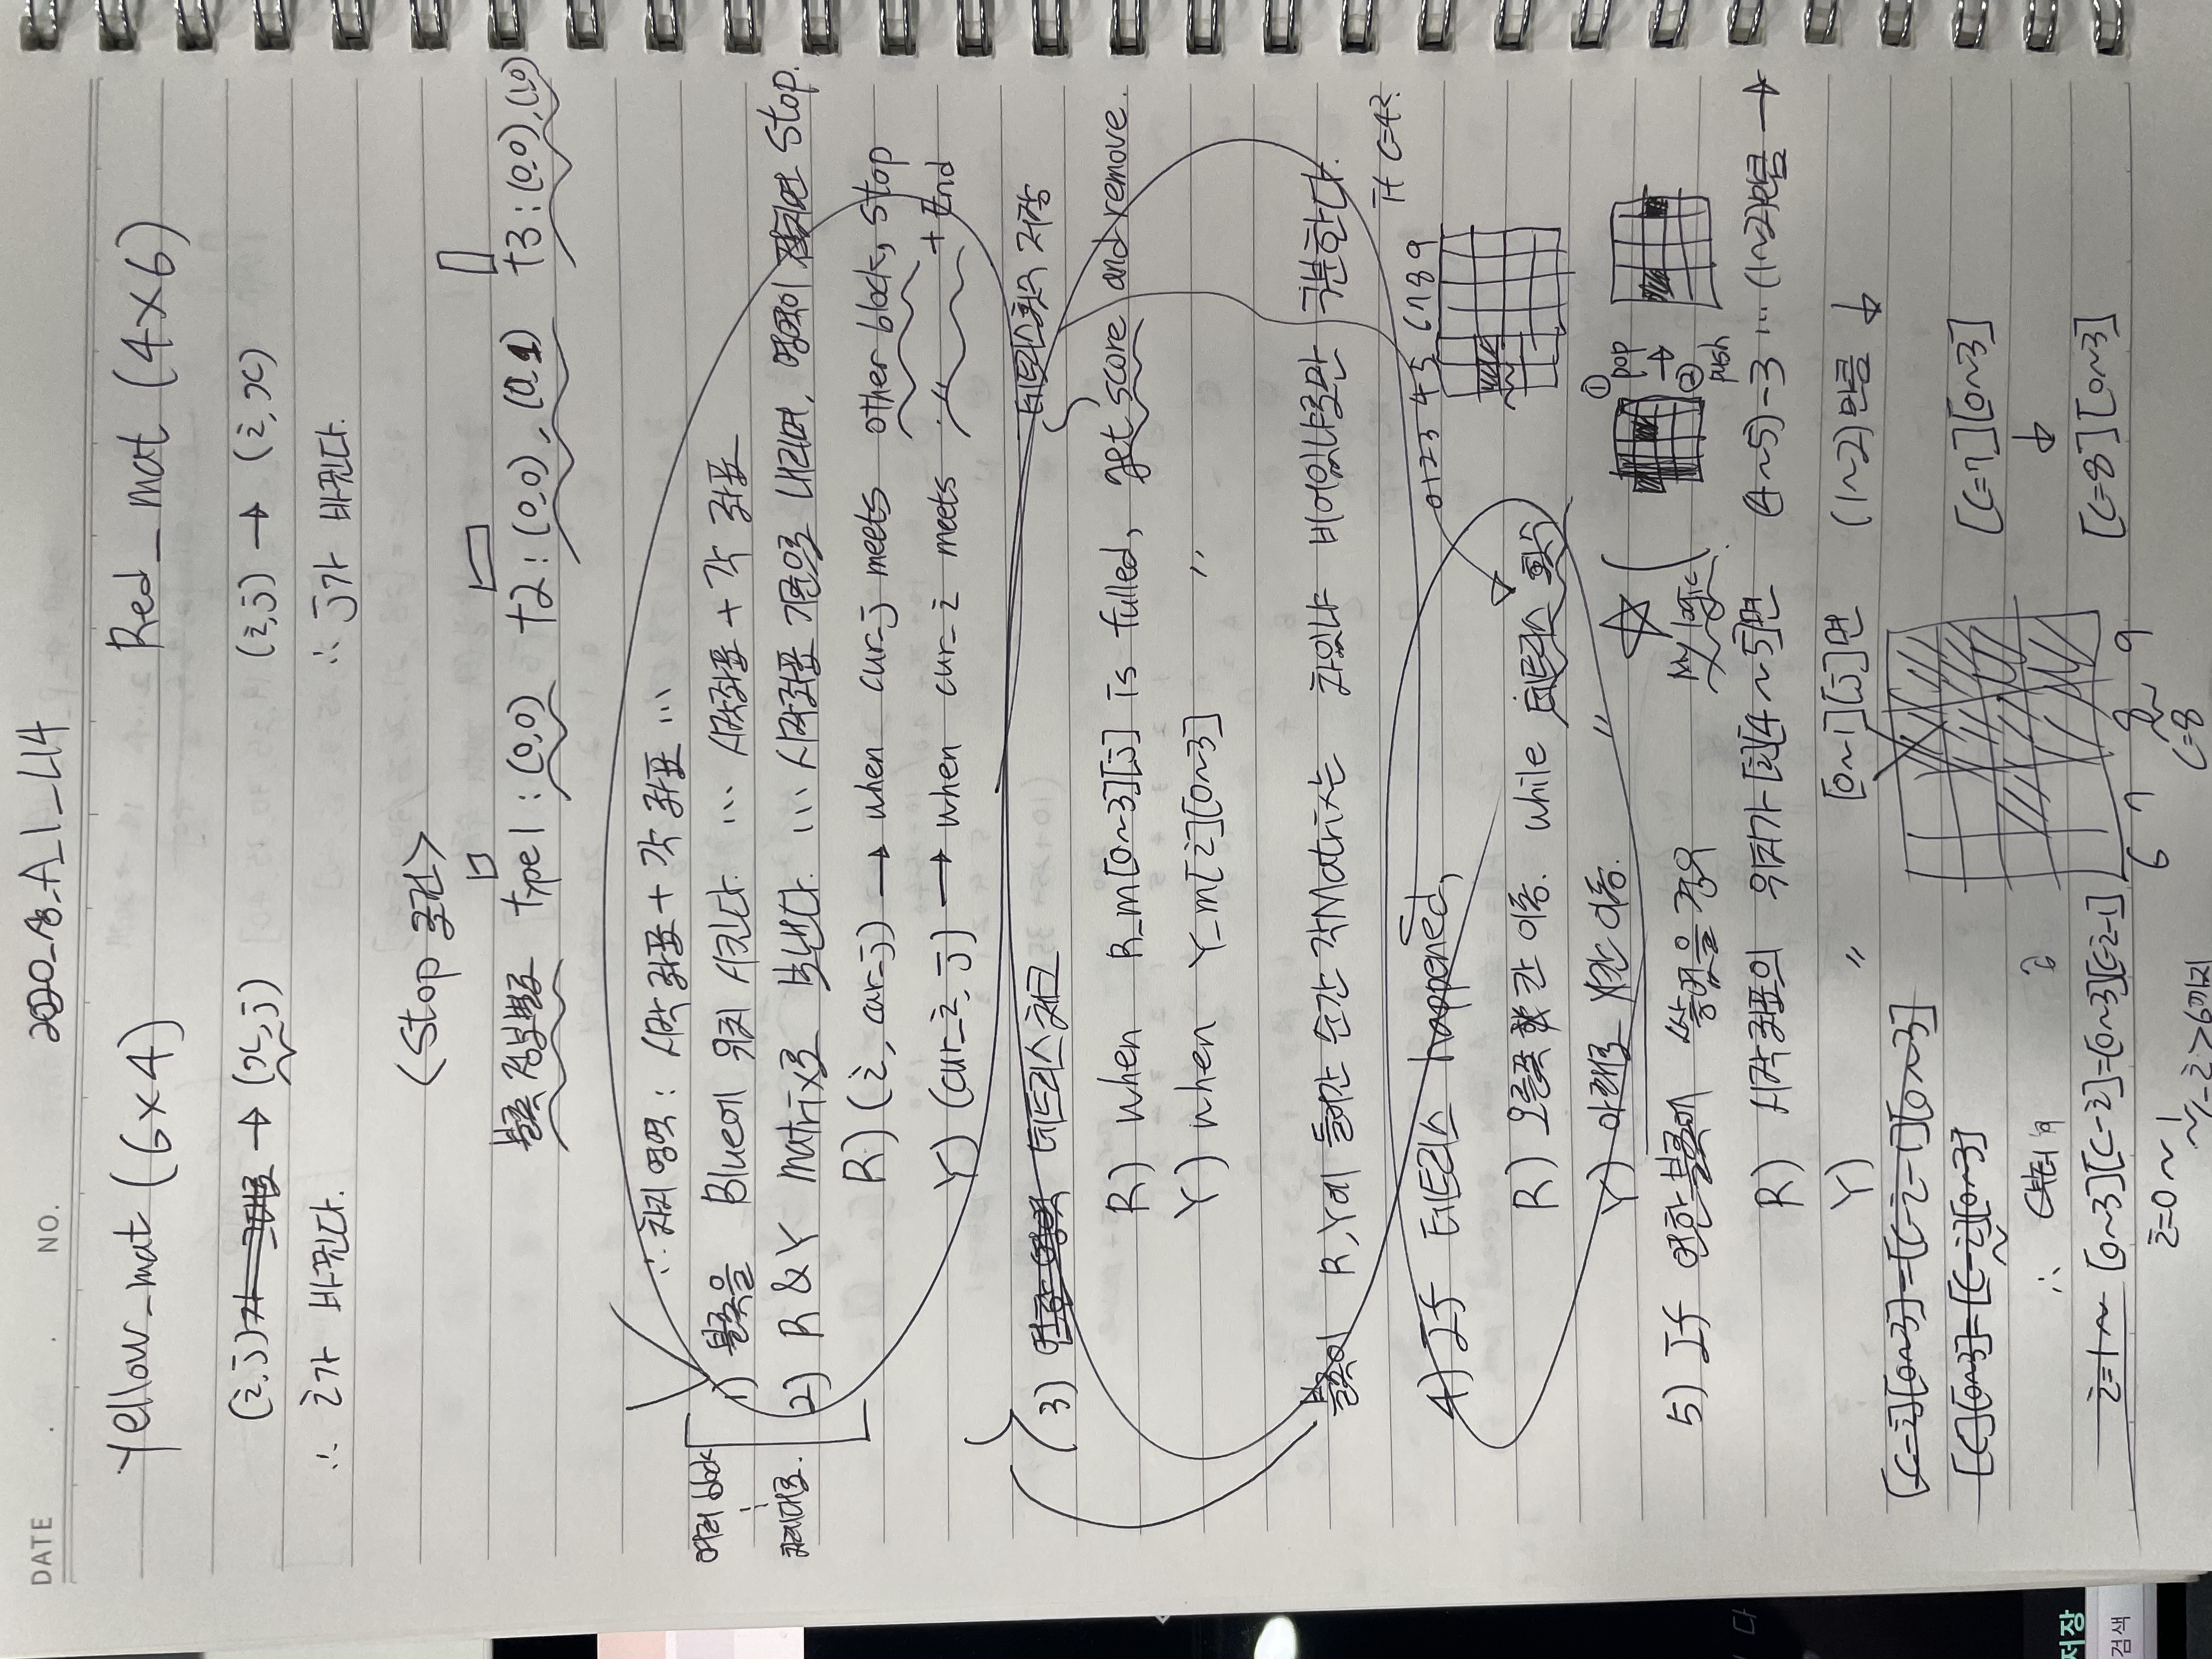 DATE . . NO. 2020_상_A_1_L14
Yellow_mat (6×4) Red_mat (4×6)
(i,j) 가 그대로 → (x,j) (i,j) → (i,x)
∴ i가 바뀐다. ∴ j가 바뀐다.
<Stop 조건>
블록 정보별로 type 1 : (0,0) t2 : (0,0), (0,1) t3 : (0,0), (1,0)
∴ 차지 영역 : 시작 좌표 + 각 좌표 …
여러 block 1) 블록을 Blue에 위치 시킨다. … 시작좌표 + 각 좌표
차례대로. 2) R & Y Matrix로 보낸다. … 시작좌표 기준으로 내리며, 영역이 겹치면 Stop.
R) (i, cur_j) → when cur_j meets other block, Stop
Y) (cur_i, j) → when cur_i meets 〃 + End
3) 테트리스 체크 테트리스 횟수 저장
R) when R_m[0~3][j] is fulled, get score and remove.
Y) when Y_m[i][0~3] 〃
블록이 R,Y에 들어간 순간 각 Matrix는 차있냐 비어있냐로만 구분한다.
if C=4?
0 1 2 3 4 5 6 7 8 9
4) If 테트리스 happened,
R) 오른쪽 칸 이동. while 테트리스 횟수
Y) 아래로 칸 이동. 〃
① pop → ② push
5) If 연한 블록에 쌓였을 경우
R) 시작 좌표의 위치가 [i][4~5]면 (4~5)-3 … (1~2)만큼 →
Y) 〃 [0~1][j]면 (1~2)만큼 ↓
[C-i][0~3] = [C-i-1][0~3]
[C=7][0~3]
[C][0~3] = [C-i][0~3]
↓
[C=8][0~3]
i=1~ [0~3][C-i] = [0~3][C-i-1]
6 7 8 9
C=8
i=0~